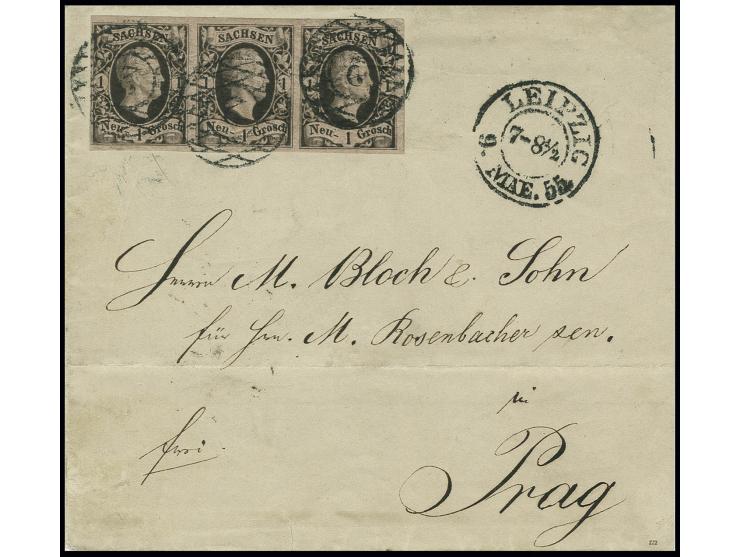 SACHSEN SACHSEN SACHSEN
1 1
Neu- 1 Grosch Neu- 1 Grosch Neu- 1 Grosch
LEIPZIG
7-8½
9. MAE. 55.
Herrn M. Bloch & Sohn
für Hrn. M. Rosenbacher sen.
in
frei.
Prag